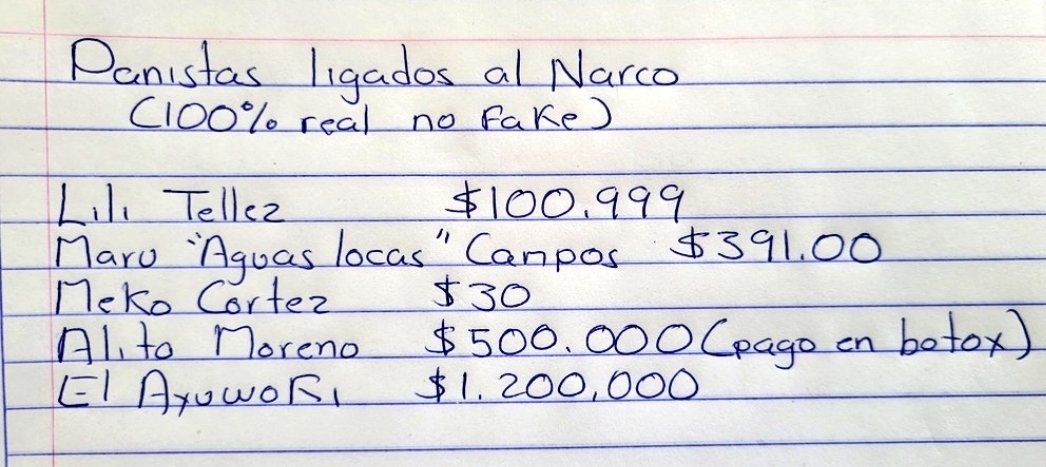 Panistas ligados al Narco
(100% real no fake)
Lili Tellez $100.999
Maru "Aguas locas" Campos $391.00
Meko Cortez $30
Alito Moreno $500.000 (pago en botox)
El AyuwoKi $1.200,000